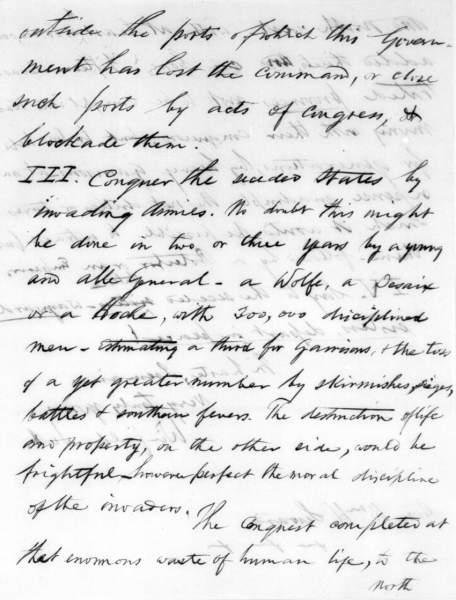 outside the ports of which this Govern-
ment has lost the command, or close
such ports by acts of congress, &
blockade them.
III. Conquer the seceded States by
invading Armies. No doubt this might
be done in two or three years by a young
and able General - a Wolfe, a Desaix
or a Hoche, with 300,000 disciplined
men - estimating a third for Garrisons, & the loss
of a yet greater number by skirmishes, sieges,
battles & southern fevers. The destruction of life
and property, on the other side, would be
frightful - however perfect the moral discipline
of the invaders.
The conquest completed at
that enormous waste of human life, to the
north